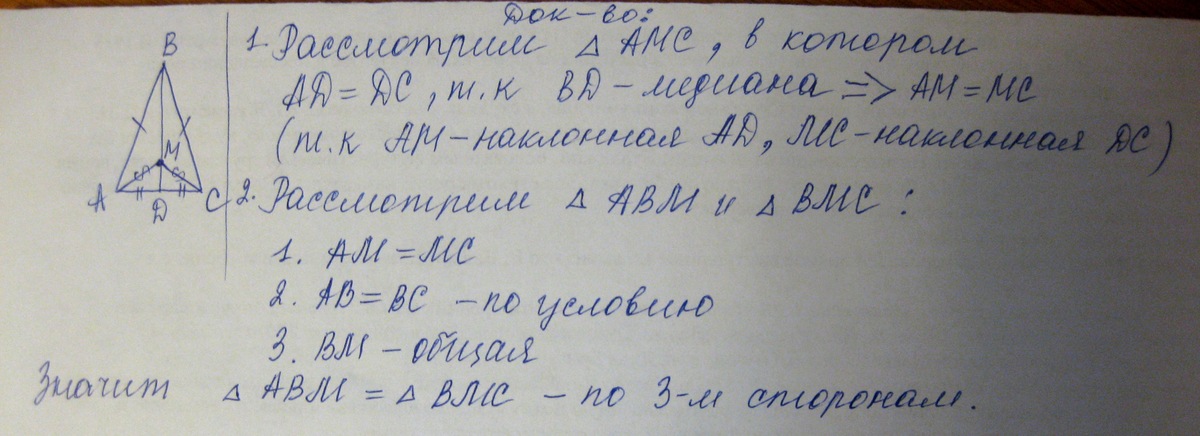 Док-во:
1. Рассмотрим △ AMC, в котором
AD = DC, т.к BD – медиана => AM = MC
(т.к AM – наклонная AD, MC – наклонная DC)
2. Рассмотрим △ ABM и △ BMC :
1. AM = MC
2. AB = BC – по условию
3. BM – общая
Значит △ ABM = △ BMC – по 3-м сторонам.
B
M
A
D
C